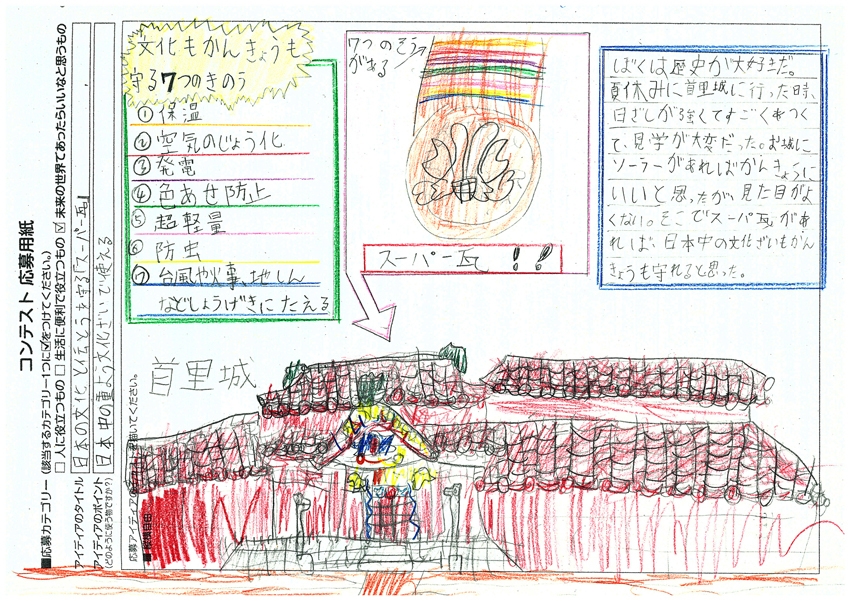 コンテスト 応募用紙
■応募カテゴリー（該当するカテゴリー1つに☑をつけてください。）
□ 人に役立つもの □ 生活に便利で役立つもの ☑ 未来の世界であったらいいなと思うもの
アイディアのタイトル
日本の文化と伝とうを守る「スーパー瓦」
アイディアのポイント
（どのように使う物ですか？）
日本中の重よう文化ざいで使える
■
文化もかんきょうも
守る7つのきのう
①保温
②空気のじょう化
③発電
④色あせ防止
⑤超軽量
⑥防虫
⑦台風や火事、地しん
などしょうげきにたえる
7つのそう
がある
スーパー瓦!!
ぼくは歴史が大好きだ。
夏休みに首里城に行った時、
日ざしが強くてすごくあつく
て、見学が大変だった。お城に
ソーラーがあればかんきょうに
いいと思ったが、見た目がよ
くない。そこでスーパー瓦があ
れば、日本中の文化ざいもかん
きょうも守れると思った。
首里城